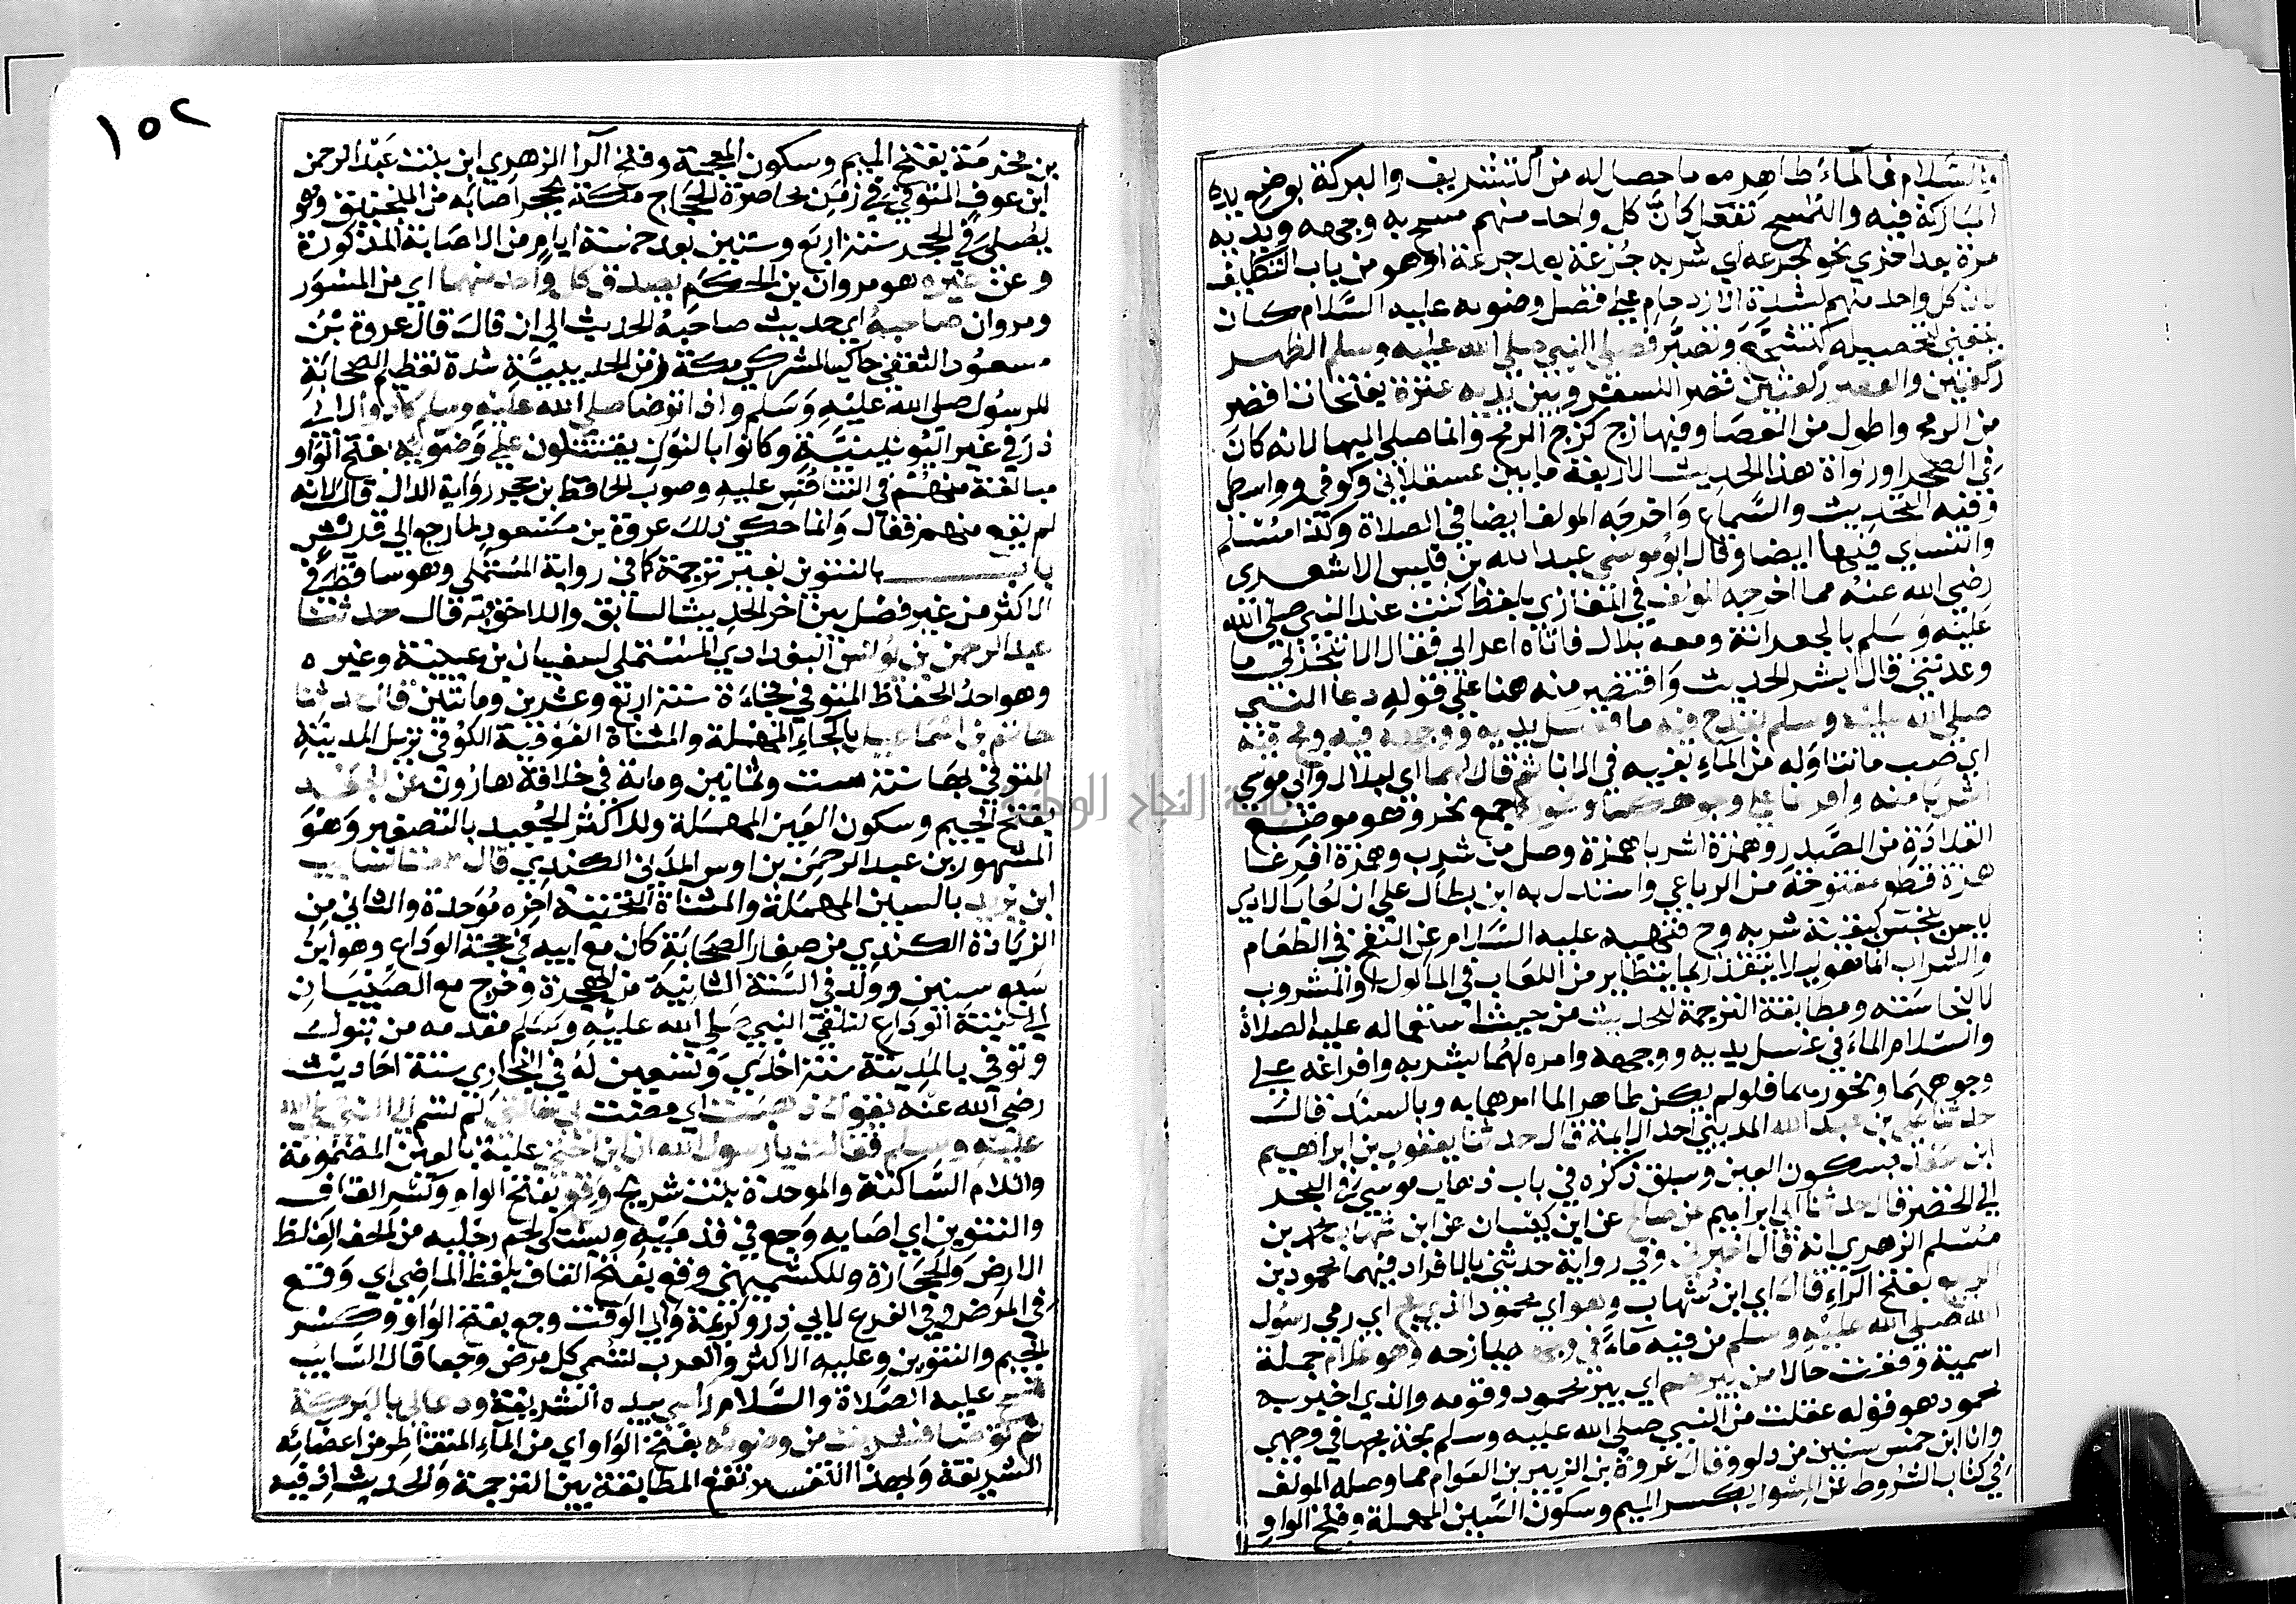 والسلام في الماء طاهر مع ما حصل له من التشريف والبركة بوضع يده
المباركة فيه والتمسح تفعل كأن كل واحد منهم مسح به وجهه ويديه
مرة بعد اخري نحو تجرعه اي شربه جرعة بعد جرعة او هو من باب التكلف
لان كل واحد منهم لشدة الازدحام علي فضل وضوءه عليه السلام كان
يتعني لتحصيله كتشجع وتصبر فصلي النبي صلي الله عليه وسلم الظهر
ركعتين والعصر ركعتين قصرا للسفر وبين يديه عنزة بفتحات اقصر
من الرمح واطول من العصا وفيها زج كزج الرمح وانما صلي اليها لانه كان
في الصحرا ورواة هذا الحديث الاربعة ما بين عسقلاني وكوفي وواسطي
وفيه التحديث والسماع واخرجه المولف ايضا في الصلاة وكذا مسلم
والنسائي فيها ايضا وقال ابو موسي عبد الله بن قيس الاشعري
رضي الله عنه مما اخرجه المولف في المغازي بلفظ كنت عند النبي صلي الله
عليه وسلم بالجعرانة ومعه بلال فاتاه اعرابي فقال الا تنجز لي ما
وعدتني قال ابشر الحديث واقتصر منه هنا علي قوله دعا النبي
صلي الله عليه وسلم بقدح فيه ما فغسل يديه ووجهه فيه ومج فيه
اي صب ما تناوله من الماء بفيه في الانا ثم قال لهما اي لبلال وابي موسي
اشربا منه وافرغا علي وجوهكما ونحوركما جمع نحر وهو موضع
القلادة من الصدر وهمزة اشربا همزة وصل من شرب وهمزة افرغا
همزة قطع مفتوحة من الرباعي واستدل به ابن بطال علي ان لعاب الادمي
ليس بنجس كبقية شربه وح فنهيه عليه السلام عن النفخ في الطعام
والشراب انما هو ليلا يتقذر بما يتطاير من اللعاب في الماكول والمشروب
لا لنجاسته ومطابقة الترجمة للحديث من حيث استعماله عليه الصلاة
والسلام الماء في غسل يديه ووجهه وامره لهما بشربه وافراغه علي
وجوههما ونحورهما فلو لم يكن طاهرا لما امرهما به وبالسند قال
حدثنا علي بن عبد الله المديني احد الايمة قال حدثنا يعقوب بن ابراهيم
ابن سعد بسكون العين وسبق ذكره في باب ذهاب موسي في البحر
الي الخضر قال حدثنا ابي ابراهيم عن صالح عن ابن كيسان عن ابن شهاب محمد بن
مسلم الزهري انه قال اخبرني وفي رواية حدثني بالافراد فيهما محمود بن
الربيع بفتح الراء قال اي ابن شهاب وهو اي محمود الذي مج اي رمي رسول
الله صلي الله عليه وسلم من فيه ماء في وجهه يمازحه وهو غلام جملة
اسمية وقعت حالا من بيرهم اي بير محمود وقومه والذي اخبر به
محمود هو قوله عقلت من النبي صلي الله عليه وسلم مجة مجها في وجهي
وانا ابن خمس سنين من دلو وقال عروة بن الزبير بن العوام مما وصله المولف
في كتاب الشروط عن المسور بكسر الميم وسكون السين المهملة وفتح الواو
١٥٢
بن مخرمة بفتح الميم وسكون المعجمة وفتح الرا الزهري ابن بنت عبد الرحمن
ابن عوف المتوفي في زمن محاصرة الحجاج مكة بحجر اصابه من المنجنيق وهو
يصلي في الحجر سنة اربع وستين بعد خمسة ايام من الاصابة المذكورة
وعن غيره هو مروان بن الحكم يصدق كل واحد منهما اي من المسور
ومروان صاحبه اي حديث صاحبه الحديث الي ان قال قال عروة بن
مسعود الثقفي حاكيا لمشركي مكة زمن الحديبية شدة تعظيم الصحابة
للرسول صلي الله عليه وسلم واذا توضا صلي الله عليه وسلم كادوا لابي
ذر في غير اليونينية وكانوا بالنون يقتتلون علي وضوئه بفتح الواو
مبالغة منهم في التنافس عليه وصوب الحافظ بن حجر رواية الدال قال لانه
لم يقع منهم قتال وانما حكي ذلك عروة بن مسعود لما رجع الي قريش
باب بالتنوين بغير ترجمة كما في رواية المستملي وهو ساقط في
الاكثر من غير فصل بين اخر الحديث السابق واللاحق به قال حدثنا
عبد الرحمن بن يونس البغدادي المستملي لسفيان بن عيينة وغيره
وهو احد الحفاظ المتوفي فجاءة سنة اربع وعشرين ومائتين قال حدثنا
حاتم بن اسماعيل بالحاء المهملة والمثناة الفوقية الكوفي نزيل المدينة
المتوفي بها سنة ست وثمانين ومائة في خلافة هارون عن الجعد
بفتح الجيم وسكون العين المهملة وللاكثر الجعيد بالتصغير وهو
المشهور بن عبد الرحمن بن اوس المدني الكندي قال سمعت السايب
ابن يزيد بالسين المهملة والمثناة التحتية اخره موحدة والثاني من
الزيادة الكندي من صغار الصحابة كان مع ابيه في حجة الوداع وهو ابن
سبع سنين وولد في السنة الثانية من الهجرة وخرج مع الصبيان
الي ثنية الوداع لتلقي النبي صلي الله عليه وسلم مقدمه من تبوك
وتوفي بالمدينة سنة احدي وتسعين له في البخاري ستة احاديث
رضي الله عنه يقول ذهبت اي مضت بي خالتي لم تسم الي النبي صلي الله
عليه وسلم فقالت يا رسول الله ان ابن اختي علبة بالعين المضمومة
واللام الساكنة والموحدة بنت شريح وقع بفتح الواو وكسر القاف
والتنوين اي اصابه وجع في قدميه ويشتكي لحم رجليه من الحفا لغلظ
الارض والحجارة وللكشميهني وقع بفتح القاف بلفظ الماضي اي وقع
في المرض وفي الفرع لابي ذر وكريمة وابي الوقت وجع بفتح الواو وكسر
الجيم والتنوين وعليه الاكثر والعرب تسمي كل مرض وجعا قال السايب
فمسح عليه الصلاة والسلام راسي بيده الشريفة ودعا لي بالبركة
ثم توضا فشربت من وضوئه بفتح الواو اي من الماء المتقاطر من اعضائه
الشريفة وبهذا التفسير تقع المطابقة بين الترجمة والحديث اذ فيه
جامعة النجاح الوطنية